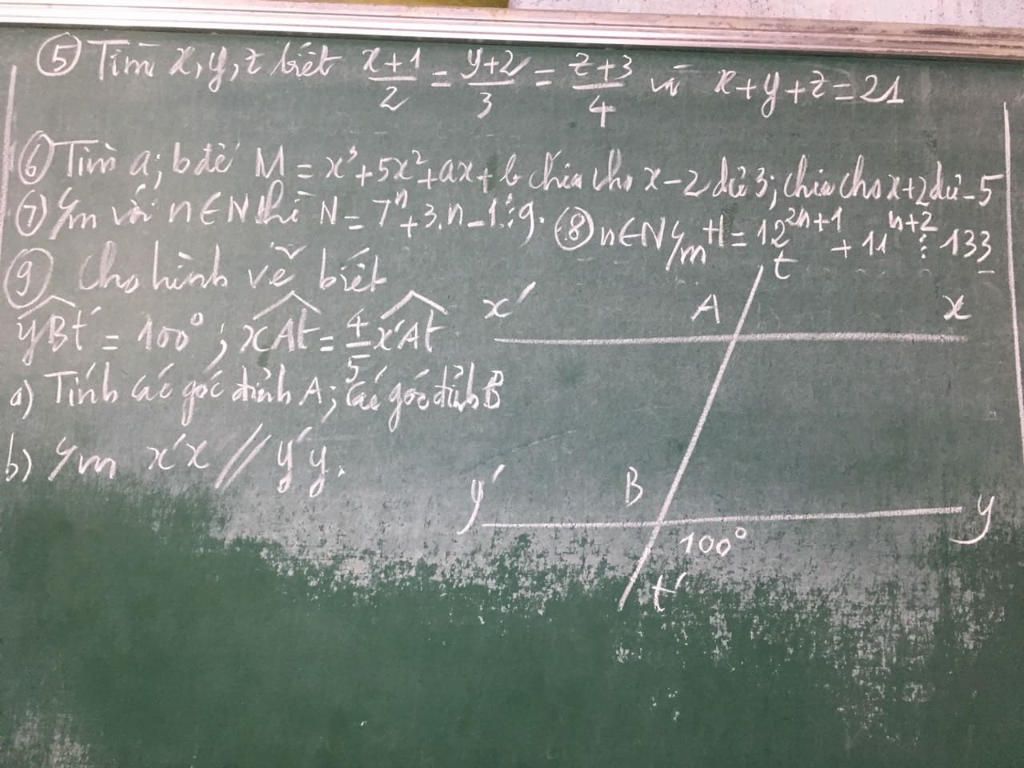 ⑤ Tìm x, y, z biết x+1/2 = y+2/3 = z+3/4 và x+y+z=21
⑥ Tìm a; b để M = x³+5x²+ax+b chia cho x-2 dư 3; chia cho x+2 dư -5
⑦ C/m với n∈N thì N = 7ⁿ+3.n-1⋮9. ⑧ n∈N C/m H = 12²ⁿ⁺¹ + 11ⁿ⁺² ⋮ 133
⑨ Cho hình vẽ biết
yBt' = 100°; xAt = 4/5 x'At
a) Tính các góc đỉnh A; các góc đỉnh B
b) C/m x'x // y'y.
t
x' A x
y' B y
100°
t'